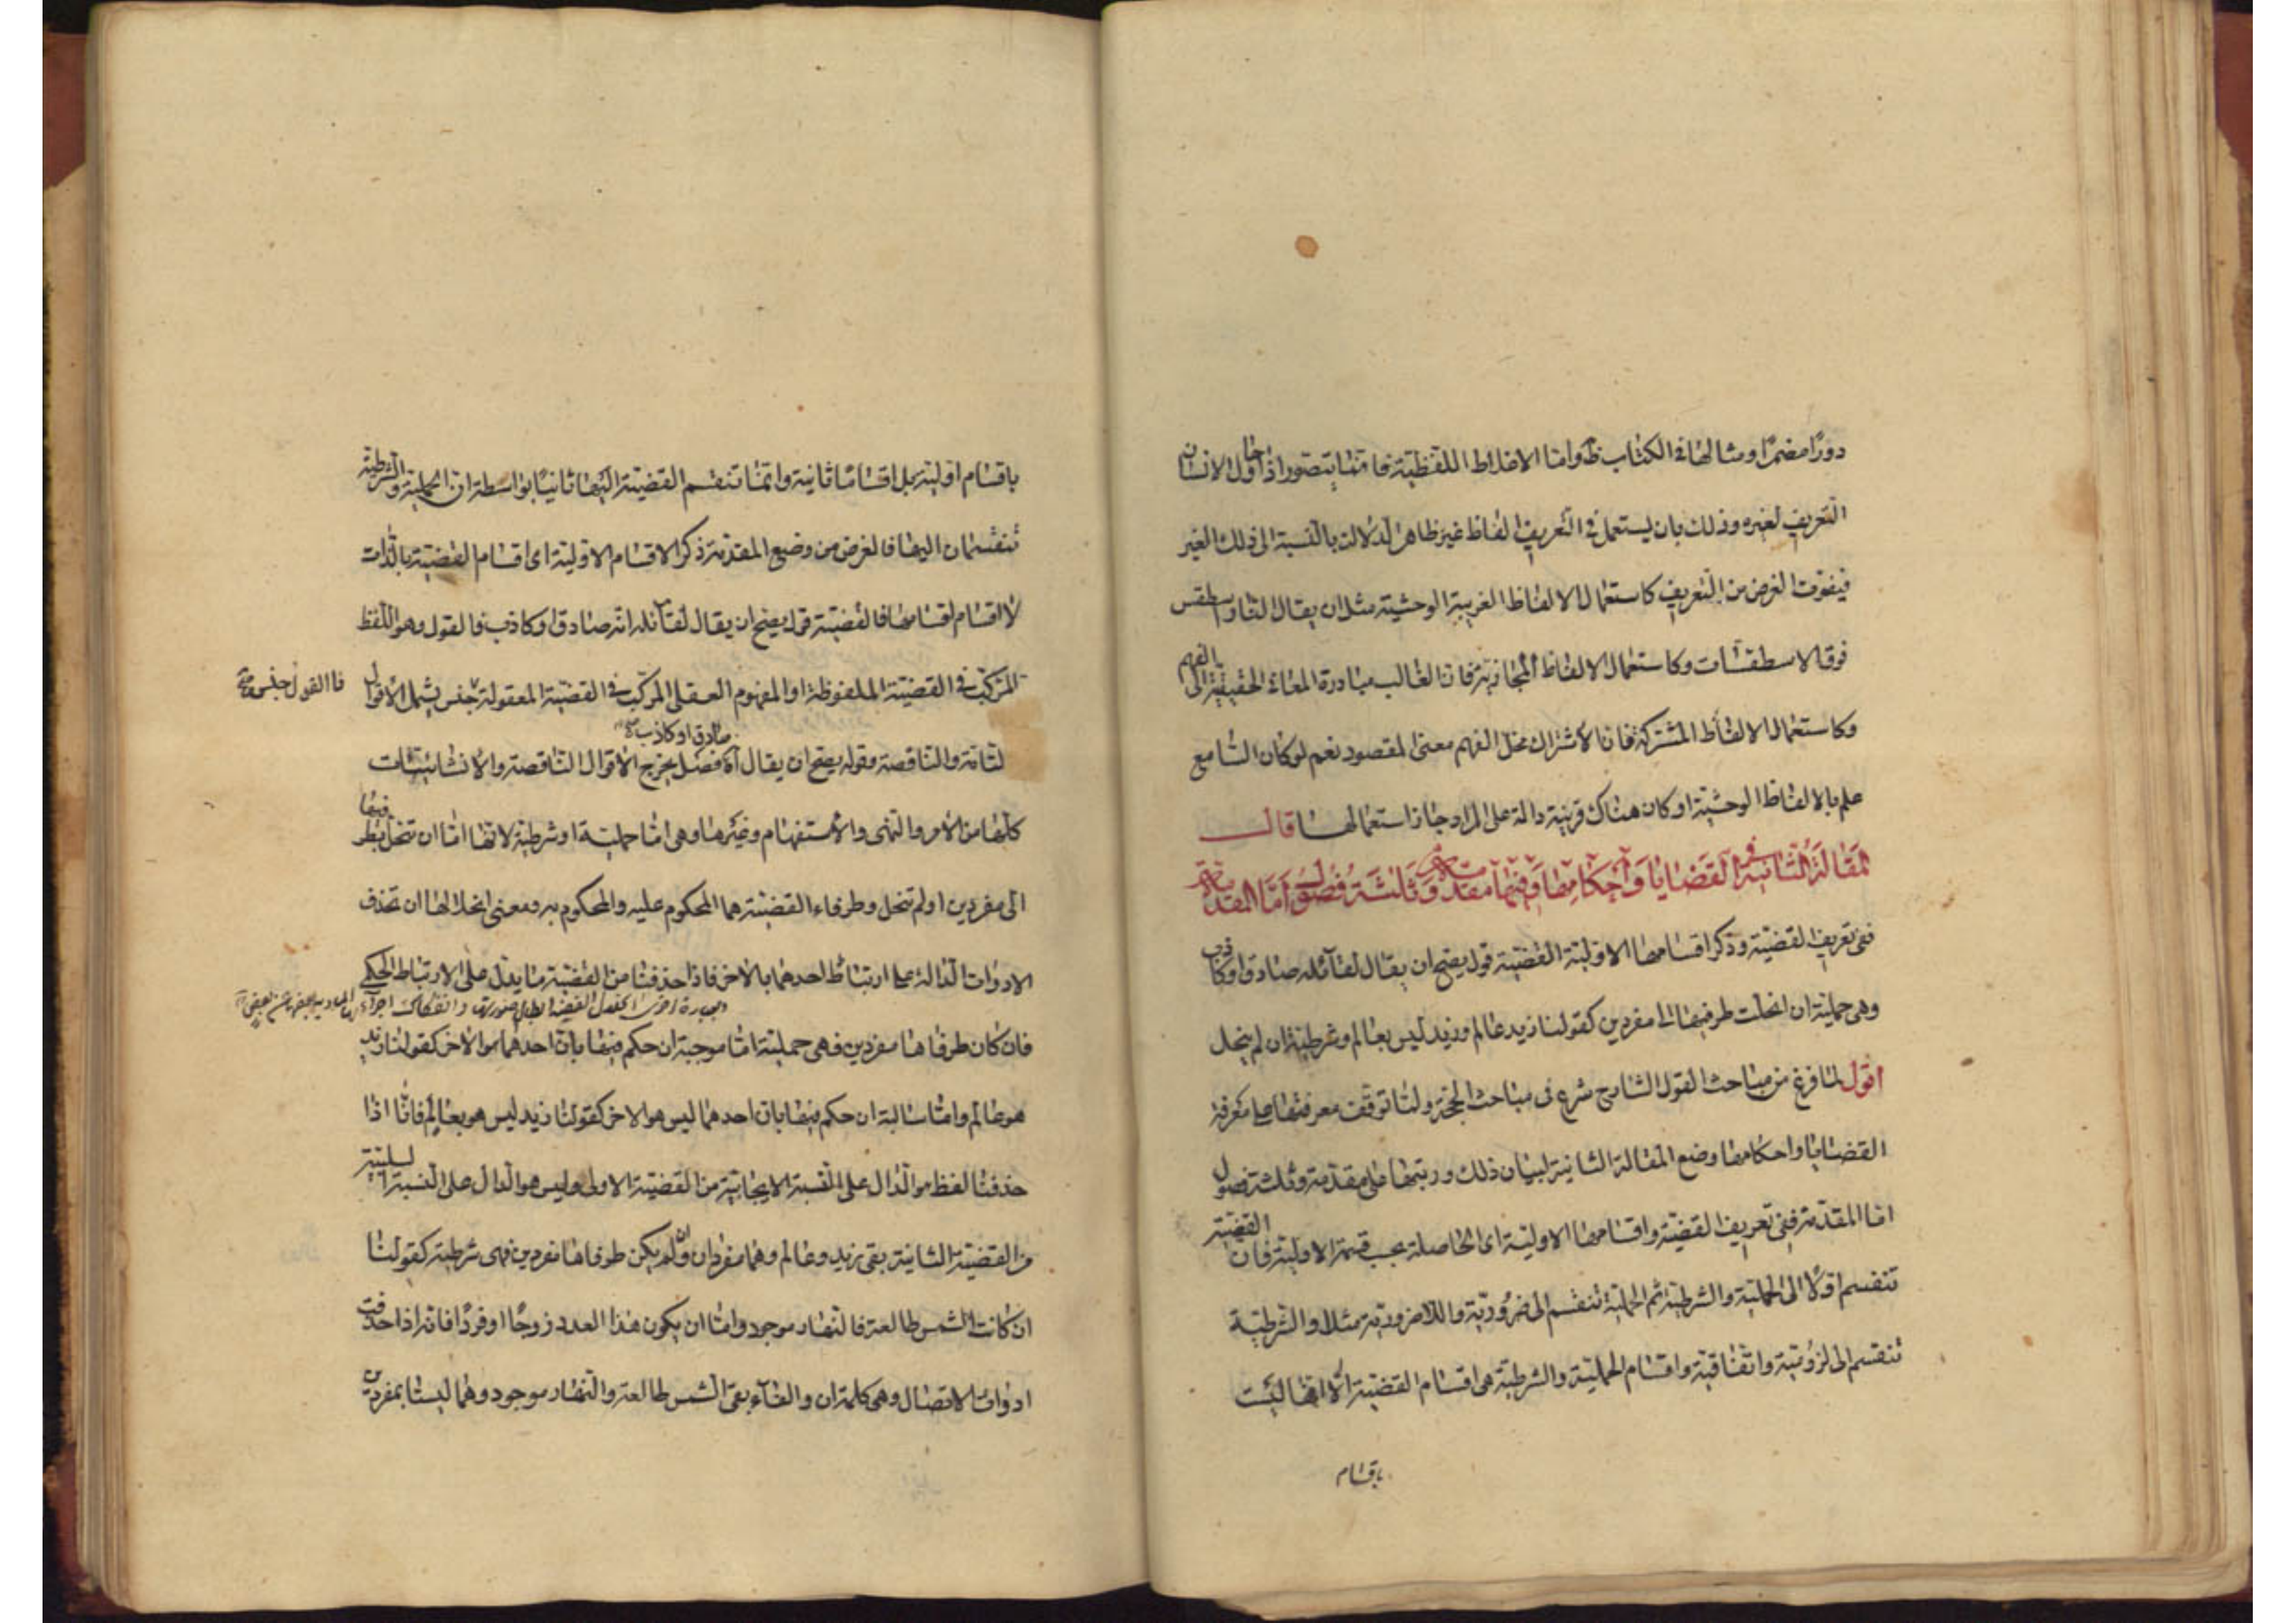 دورًا مضمرًا ومثالها في الكتاب ظ واما الاغلاط اللفظية فانما يتصور اذا حاول الانسان
التعريف لغيره وذلك بان يستعمل في التعريف الفاظ غير ظاهر الدلالت بالنسبة الى ذلك الغير
فيفوت الغرض من التعريف كاستعمال الالفاظ الغريبة الوحشية مثل ان يقال النار اسطقس
فوق الاسطقسات وكاستعمال الالفاظ المجازية فان الغالب مبادرة المعاني الحقيقية الى الفهم
وكاستعمال الالفاظ المشتركة فان الاشتراك مخل الفهم معنى المقصود نعم لو كان السامع
علم بالالفاظ الوحشية او كان هناك قرينة دالة على المراد جاز استعمالها قال
المقالة الثانية في القضايا واحكامها وفيها مقدمة وثلثة فصول اما المقدمة
ففي تعريف القضية وذكر اقسامها الاولية القضية قول يصح ان يقال لقائله صادق او كاذب
وهي حملية ان انحلت طرفيها الى مفردين كقولنا زيد عالم وزيد ليس بعالم وشرطية ان لم ينحل
اقول لما فرغ من مباحث القول الشارح شرع في مباحث الحجة ولما توقف معرفتها على معرفة
القضايا واحكامها وضع المقالة الثانية لبيان ذلك ورتبها على مقدمة وثلثة فصول
اما المقدمة ففي تعريف القضية واقسامها الاولية اى الحاصلة بحسب قسمة الاولية فان القضية
تنقسم اولًا الى الحملية والشرطية ثم الحملية تنقسم الى ضرورية واللاضرورية مثلا والشرطية
تنقسم الى لزومية واتفاقية واقسام الحملية والشرطية هى اقسام القضية الا انها ليست
باقسام
باقسام اولية بل اقسامًا ثانية وانما تنقسم القضية اليها ثانيًا بواسطة ان الحملية والشرطية
تنقسمان اليها فالغرض من وضع المقدمة ذكر الاقسام الاولية اى اقسام القضية بالذات
لا اقسام اقسامها فالقضية قول يصح ان يقال لقائله انه صادق او كاذب فالقول وهو اللفظ
المركب في القضية الملفوظة او المفهوم العقلى المركب في القضية المعقولة جنس يشمل الاقوال
فالقول جنس
صادق او كاذب
لتامة والناقصة وقوله يصح ان يقال آه فصل يخرج الاقوال الناقصة والانشائيات
كلها من الامر والتمنى والاستفهام وغيرها وهى اما حملية او شرطية لانها اما ان تنحل بطرفيها
الى مفردين او لم تنحل وطرفاء القضية هما المحكوم عليه والمحكوم به ومعنى انحلالها ان تحذف
الادوات الدالة على ارتباط احدهما بالاخر فاذا حذفنا من القضية ما يدل على الارتباط الحكمى
فان كان طرفاها مفردين فهى حملية اما موجبة ان حكم فيها بان احدهما هو الاخر كقولنا زيد
هو عالم واما سالبة ان حكم فيها بان احدهما ليس هو الاخر كقولنا زيد ليس هو بعالم فانا اذا
حذفنا لفظ هو الدال على النسبة الايجابية من القضية الاولى وليس هو الدال على النسبة السلبية
من القضية الثانية بقى زيد وعالم وهما مفردان وان لم يكن طرفاها مفردين فهى شرطية كقولنا
ان كانت الشمس طالعة فالنهار موجود واما ان يكون هذا العدد زوجًا او فردًا فانه اذا حذفت
ادوات الاتصال وهى كلمة ان والفاء بقى الشمس طالعة والنهار موجود وهما ليستا بمفردين